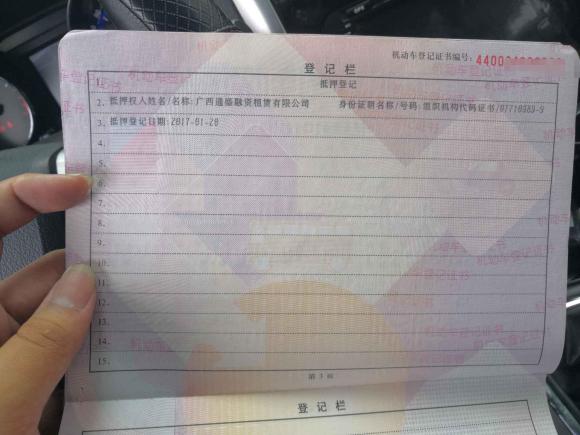 机动车登记证书编号:
登记栏
1. 抵押登记
2. 抵押权人姓名/名称:广西通盛融资租赁有限公司 身份证明名称/号码:组织机构代码证书/07710383-9
3. 抵押登记日期:2017-01-20
4.
5.
6.
7.
8.
9.
10.
11.
12.
13.
14.
15.
第 3 页
登记栏